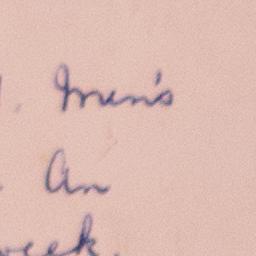 . Men's
An
week.